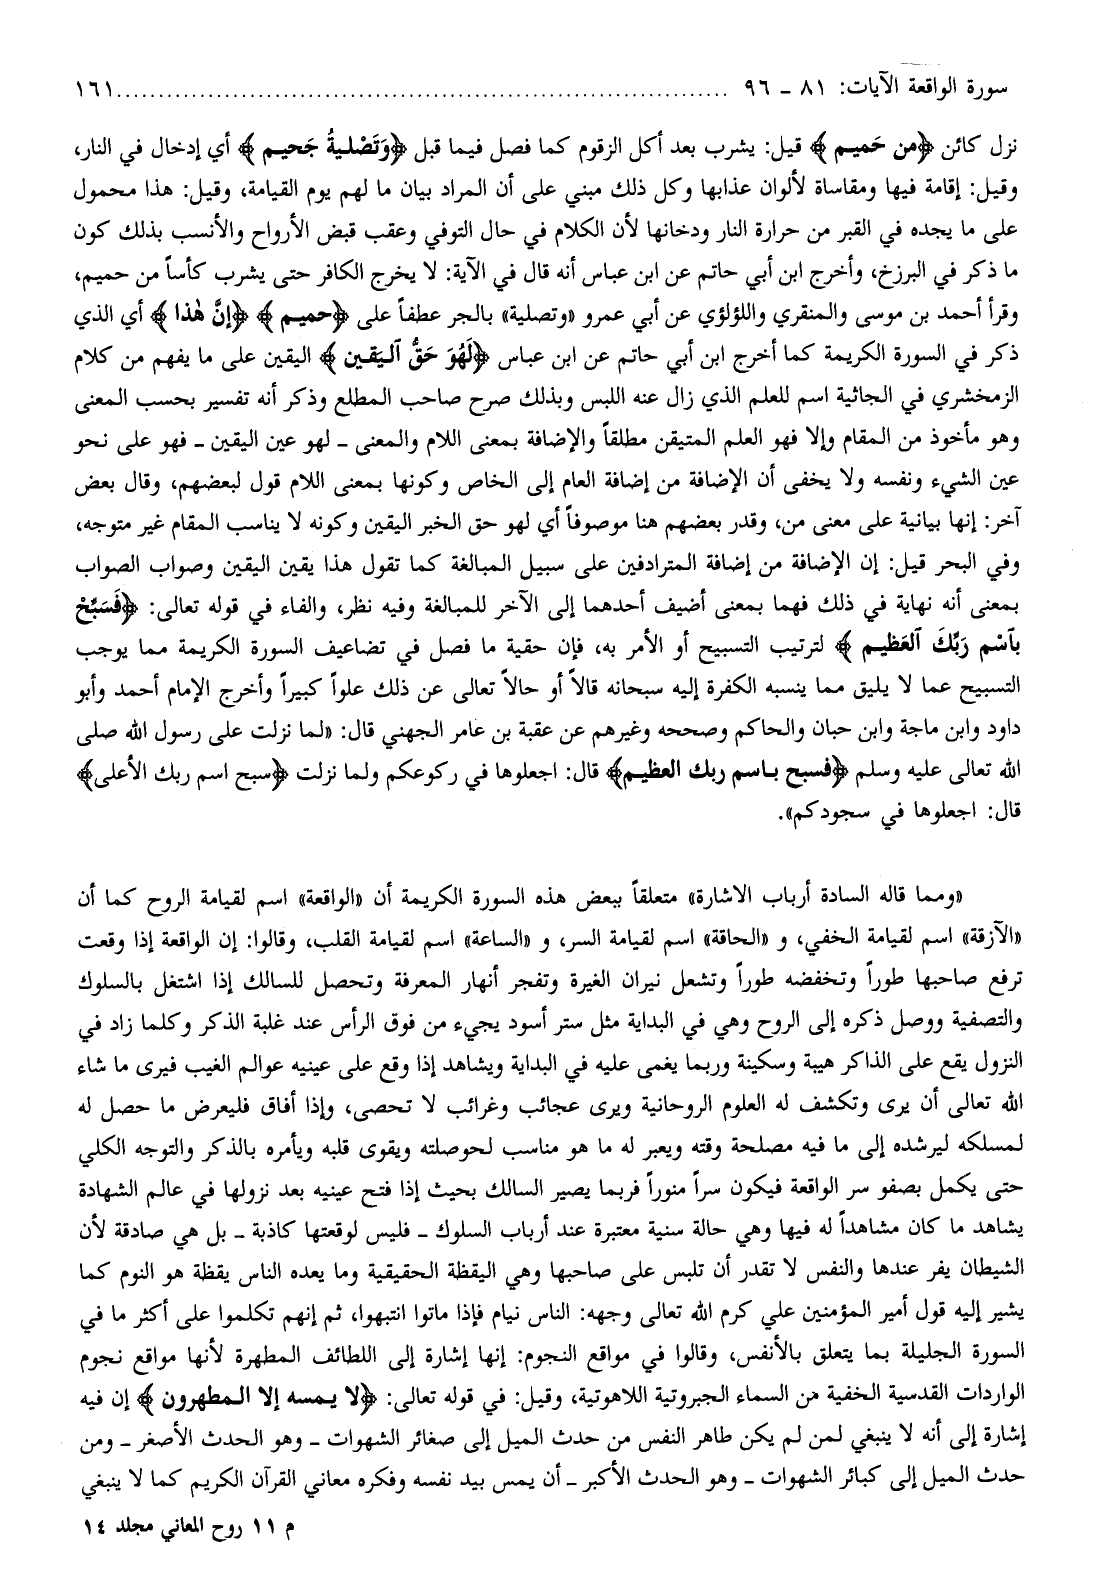 سورة الواقعة الآيات: ٨١ ـ ٩٦ ........................................................................... ١٦١
نزل كائن ﴿من حَميـم ﴾ قيل: يشرب بعد أكل الزقوم كما فصل فيما قبل ﴿وَتَصْلـيةُ جَحيـم ﴾ أي إدخال في النار،
وقيل: إقامة فيها ومقاساة لألوان عذابها وكل ذلك مبني على أن المراد بيان ما لهم يوم القيامة، وقيل: هذا محمول
على ما يجده في القبر من حرارة النار ودخانها لأن الكلام في حال التوفي وعقب قبض الأرواح والأنسب بذلك كون
ما ذكر في البرزخ، وأخرج ابن أبي حاتم عن ابن عباس أنه قال في الآية: لا يخرج الكافر حتى يشرب كأساً من حميم،
وقرأ أحمد بن موسى والمنقري واللؤلؤي عن أبي عمرو «وتصلية» بالجر عطفاً على ﴿حميـم ﴾ ﴿إنَّ هٰذا ﴾ أي الذي
ذكر في السورة الكريمة كما أخرج ابن أبي حاتم عن ابن عباس ﴿لَهُوَ حَقُّ ٱليَقـين ﴾ اليقين على ما يفهم من كلام
الزمخشري في الجاثية اسم للعلم الذي زال عنه اللبس وبذلك صرح صاحب المطلع وذكر أنه تفسير بحسب المعنى
وهو مأخوذ من المقام وإلا فهو العلم المتيقن مطلقاً والإضافة بمعنى اللام والمعنى ـ لهو عين اليقين ـ فهو على نحو
عين الشيء ونفسه ولا يخفى أن الإضافة من إضافة العام إلى الخاص وكونها بمعنى اللام قول لبعضهم، وقال بعض
آخر: إنها بيانية على معنى من، وقدر بعضهم هنا موصوفاً أي لهو حق الخبر اليقين وكونه لا يناسب المقام غير متوجه،
وفي البحر قيل: إن الإضافة من إضافة المترادفين على سبيل المبالغة كما تقول هذا يقين اليقين وصواب الصواب
بمعنى أنه نهاية في ذلك فهما بمعنى أضيف أحدهما إلى الآخر للمبالغة وفيه نظر، والفاء في قوله تعالى: ﴿فَسَبِّحْ
بٱسْم رَبِّكَ ٱلعَظـيم ﴾ لترتيب التسبيح أو الأمر به، فإن حقية ما فصل في تضاعيف السورة الكريمة مما يوجب
التسبيح عما لا يليق مما ينسبه الكفرة إليه سبحانه قالاً أو حالاً تعالى عن ذلك علواً كبيراً وأخرج الإمام أحمد وأبو
داود وابن ماجة وابن حبان والحاكم وصححه وغيرهم عن عقبة بن عامر الجهني قال: «لما نزلت على رسول الله صلى
الله تعالى عليه وسلم ﴿فسبح بـاسم ربك العظيـم﴾ قال: اجعلوها في ركوعكم ولما نزلت ﴿سبح اسم ربك الأعلى﴾
قال: اجعلوها في سجودكم».
«ومما قاله السادة أرباب الاشارة» متعلقاً ببعض هذه السورة الكريمة أن «الواقعة» اسم لقيامة الروح كما أن
«الآزقة» اسم لقيامة الخفي، و «الحاقة» اسم لقيامة السر، و «الساعة» اسم لقيامة القلب، وقالوا: إن الواقعة إذا وقعت
ترفع صاحبها طوراً وتخفضه طوراً وتشعل نيران الغيرة وتفجر أنهار المعرفة وتحصل للسالك إذا اشتغل بالسلوك
والتصفية ووصل ذكره إلى الروح وهي في البداية مثل ستر أسود يجيء من فوق الرأس عند غلبة الذكر وكلما زاد في
النزول يقع على الذاكر هيبة وسكينة وربما يغمى عليه في البداية ويشاهد إذا وقع على عينيه عوالم الغيب فيرى ما شاء
الله تعالى أن يرى وتكشف له العلوم الروحانية ويرى عجائب وغرائب لا تحصى، وإذا أفاق فليعرض ما حصل له
لمسلكه ليرشده إلى ما فيه مصلحة وقته ويعبر له ما هو مناسب لحوصلته ويقوى قلبه ويأمره بالذكر والتوجه الكلي
حتى يكمل بصفو سر الواقعة فيكون سراً منوراً فربما يصير السالك بحيث إذا فتح عينيه بعد نزولها في عالم الشهادة
يشاهد ما كان مشاهداً له فيها وهي حالة سنية معتبرة عند أرباب السلوك ـ فليس لوقعتها كاذبة ـ بل هي صادقة لأن
الشيطان يفر عندها والنفس لا تقدر أن تلبس على صاحبها وهي اليقظة الحقيقية وما يعده الناس يقظة هو النوم كما
يشير إليه قول أمير المؤمنين علي كرم الله تعالى وجهه: الناس نيام فإذا ماتوا انتبهوا، ثم إنهم تكلموا على أكثر ما في
السورة الجليلة بما يتعلق بالأنفس، وقالوا في مواقع النجوم: إنها إشارة إلى اللطائف المطهرة لأنها مواقع نجوم
الواردات القدسية الخفية من السماء الجبروتية اللاهوتية، وقيل: في قوله تعالى: ﴿لا يـمسه إلا الـمطهرون ﴾ إن فيه
إشارة إلى أنه لا ينبغي لمن لم يكن طاهر النفس من حدث الميل إلى صغائر الشهوات ـ وهو الحدث الأصغر ـ ومن
حدث الميل إلى كبائر الشهوات ـ وهو الحدث الأكبر ـ أن يمس بيد نفسه وفكره معاني القرآن الكريم كما لا ينبغي
م ١١ روح المعاني مجلد ١٤